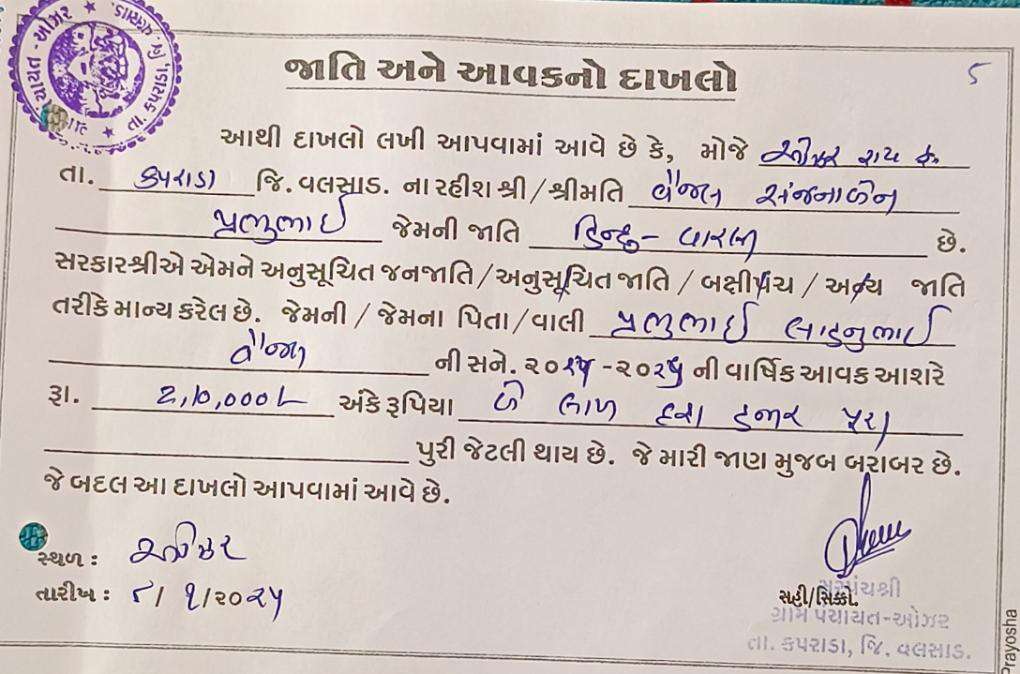 જાતિ અને આવકનો દાખલો
5
આથી દાખલો લખી આપવામાં આવે છે કે, મોજે ઓઝર
તા. કપરાડા જિ. વલસાડ. ના રહીશ શ્રી/શ્રીમતિ વૈજલ અંજનાબેન
પ્રભુભાઈ જેમની જાતિ હિન્દુ - વારલી છે.
સરકારશ્રીએ એમને અનુસૂચિત જનજાતિ/અનુસૂચિત જાતિ / બક્ષીપંચ / અન્ય જાતિ
તરીકે માન્ય કરેલ છે. જેમની / જેમના પિતા/વાલી પ્રભુભાઈ લાડનુભાઈ
વૈજલ ની સને. ૨૦૨૫-૨૦૨૫ ની વાર્ષિક આવક આશરે
રૂા. 2,10,000/- અંકે રૂપિયા બે લાખ દશ હજાર પુરા
પુરી જેટલી થાય છે. જે મારી જાણ મુજબ બરાબર છે.
જે બદલ આ દાખલો આપવામાં આવે છે.
સ્થળ : ઓઝર
તારીખ : ૮/૧/૨૦૨૫
સહી/સિક્કો.
સરપંચશ્રી
ગ્રામ પંચાયત-ઓઝર
તા. કપરાડા, જિ. વલસાડ.
Prayosha